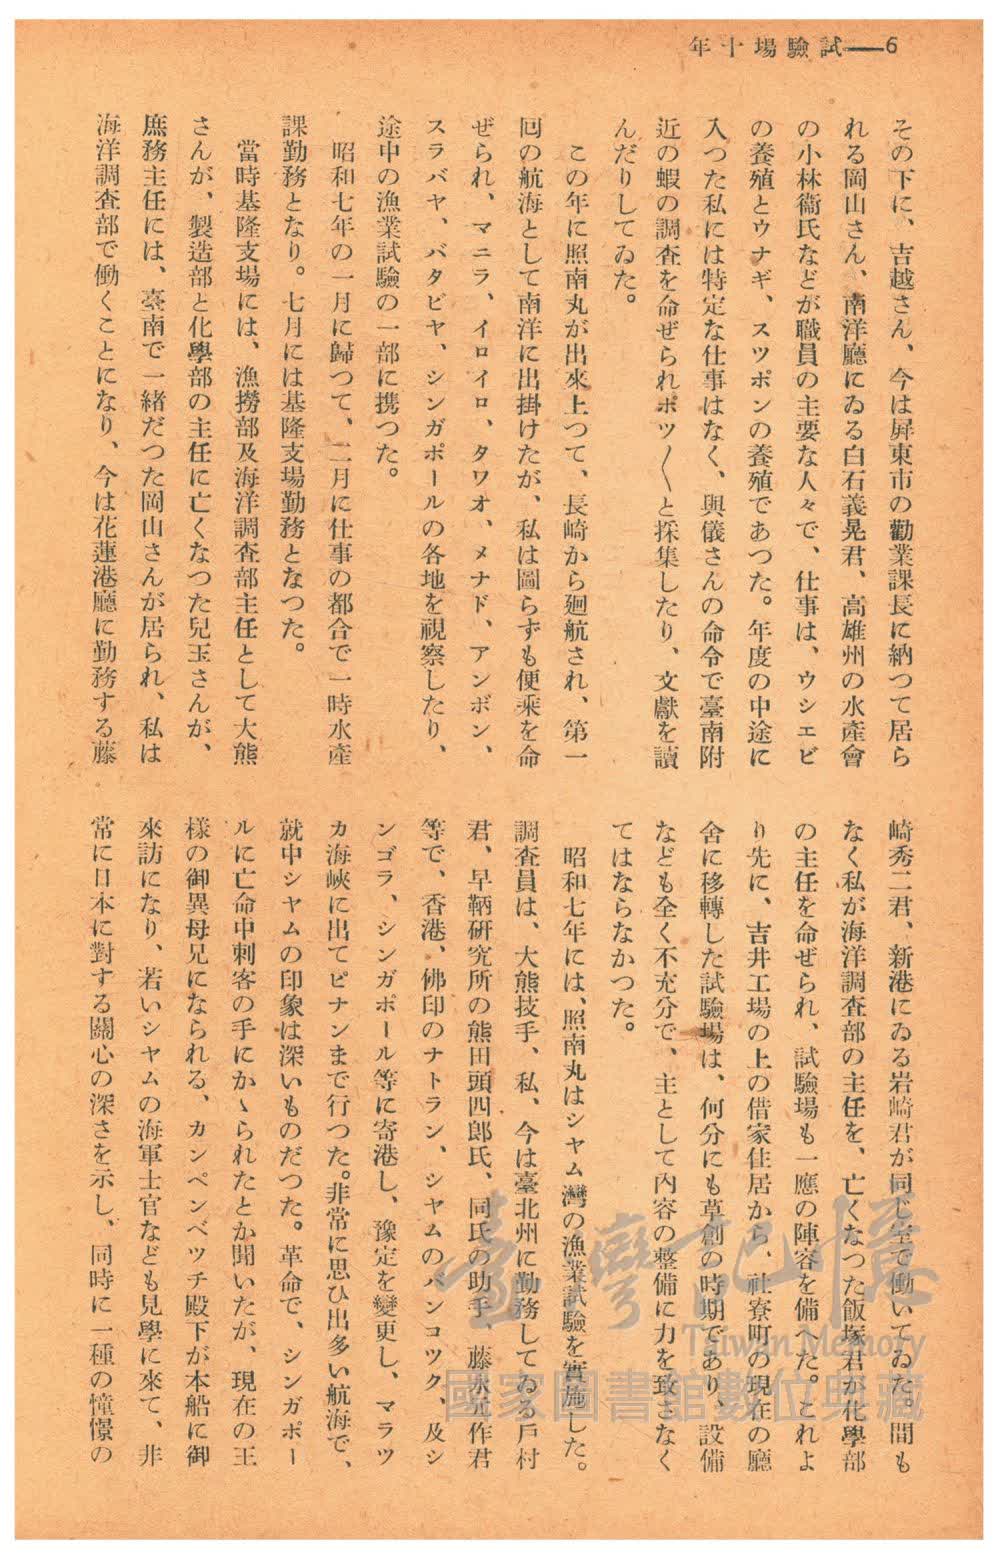 年十場驗試——6
その下に、吉越さん、今は屏東市の勸業課長に納つて居ら
れる岡山さん、南洋廳にゐる白石義晃君、高雄州の水產會
の小林衞氏などが職員の主要な人々で、仕事は、ウシエビ
の養殖とウナギ、スツポンの養殖であつた。年度の中途に
入つた私には特定な仕事はなく、與儀さんの命令で臺南附
近の蝦の調査を命ぜられポツ〳〵と採集したり、文獻を讀
んだりしてゐた。
この年に照南丸が出來上つて、長崎から廻航され、第一
回の航海として南洋に出掛けたが、私は圖らずも便乘を命
ぜられ、マニラ、イロイロ、タワオ、メナド、アンボン、
スラバヤ、バタビヤ、シンガポールの各地を視察したり、
途中の漁業試驗の一部に携つた。
昭和七年の一月に歸つて、二月に仕事の都合で一時水產
課勤務となり。七月には基隆支場勤務となつた。
當時基隆支場には、漁撈部及海洋調査部主任として大熊
さんが、製造部と化學部の主任に亡くなつた兒玉さんが、
庶務主任には、臺南で一緒だつた岡山さんが居られ、私は
海洋調査部で働くことになり、今は花蓮港廳に勤務する藤
崎秀二君、新港にゐる岩崎君が同じ室で働いてゐた。間も
なく私が海洋調査部の主任を、亡くなつた飯塚君が化學部
の主任を命ぜられ、試驗場も一應の陣容を備へた。これよ
り先に、吉井工場の上の借家住居から、社寮町の現在の廳
舍に移轉した試驗場は、何分にも草創の時期であり、設備
なども全く不充分で、主として內容の整備に力を致さなく
てはならなかつた。
昭和七年には、照南丸はシヤム灣の漁業試驗を實施した。
調査員は、大熊技手、私、今は臺北州に勤務してゐる戶村
君、早鞆硏究所の熊田頭四郎氏、同氏の助手、藤永元作君
等で、香港、佛印のナトラン、シヤムのバンコツク、及シ
ンゴラ、シンガポール等に寄港し、豫定を變更し、マラツ
カ海峽に出てピナンまで行つた。非常に思ひ出多い航海で、
就中シヤムの印象は深いものだつた。革命で、シンガポー
ルに亡命中刺客の手にかゝられたとか聞いたが、現在の王
樣の御異母兄になられる、カンペンベツチ殿下が本船に御
來訪になり、若いシヤムの海軍士官なども見學に來て、非
常に日本に對する關心の深さを示し、同時に一種の憧憬の
臺灣記憶
Taiwan Memory
國家圖書館數位典藏